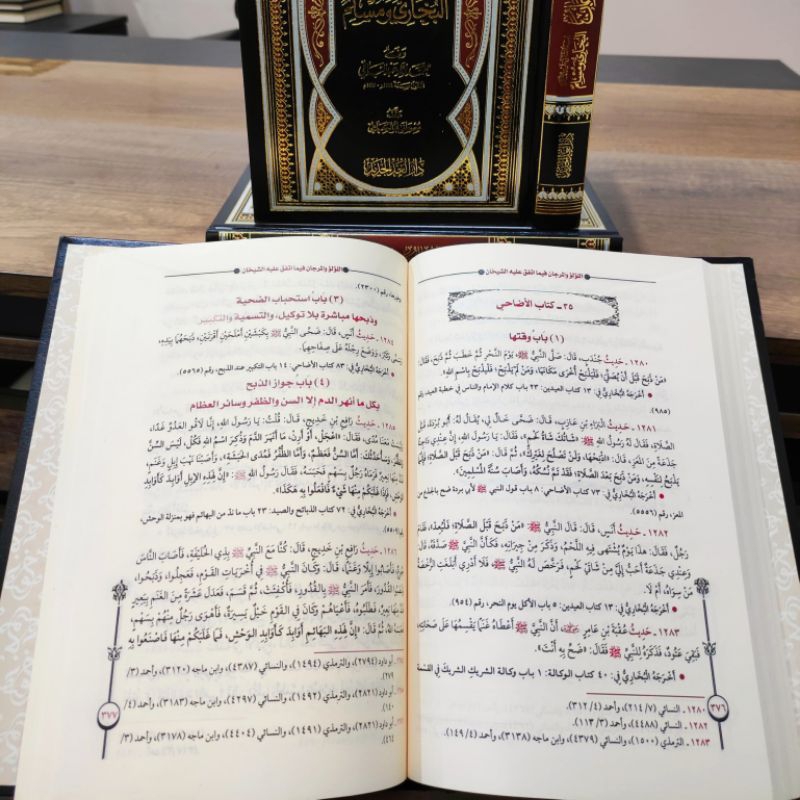 البخاري ومسلم
دار الغد الجديد
البخاري ومسلم
اللؤلؤ والمرجان فيما اتفق عليه الشيخان
٣٥ ـ كتاب الأضاحي
(١) باب وقتها
١٢٨٠ ـ حديث جُنْدَبٍ، قَالَ: صَلَّى النَّبِيُّ ﷺ، يَوْمَ النَّحْرِ ثُمَّ خَطَبَ ثُمَّ ذَبَحَ، فَقَالَ:
«مَنْ ذَبَحَ قَبْلَ أَنْ يُصَلِّيَ، فَلْيَذْبَحْ أُخْرَى مَكَانَهَا، وَمَنْ لَمْ يَذْبَحْ، فَلْيَذْبَحْ بِاسْمِ اللهِ».
أخرجه البخاري في: ١٣ كتاب العيدين: ٢٣ باب كلام الإمام والناس في خطبة العيد، رقم
(٩٨٥)
١٢٨١ ـ حديث الْبَرَاءِ بْنِ عَازِبٍ، قَالَ: ضَحَّى خَالٌ لِي، يُقَالُ لَهُ: أَبُو بُرْدَةَ، قَبْلَ
الصَّلَاةِ، فَقَالَ لَهُ رَسُولُ اللهِ ﷺ: «شَاتُكَ شَاةُ لَحْمٍ»، فَقَالَ: يَا رَسُولَ اللهِ، إِنَّ عِنْدِي دَاجِنًا
جَذَعَةً مِنَ الْمَعَزِ، قَالَ: «اذْبَحْهَا، وَلَنْ تَصْلُحَ لِغَيْرِكَ»، ثُمَّ قَالَ: «مَنْ ذَبَحَ قَبْلَ الصَّلَاةِ، فَإِنَّمَا
يَذْبَحُ لِنَفْسِهِ، وَمَنْ ذَبَحَ بَعْدَ الصَّلَاةِ؛ فَقَدْ تَمَّ نُسُكُهُ، وَأَصَابَ سُنَّةَ الْمُسْلِمِينَ».
أخرجه البخاري في: ٧٣ كتاب الأضاحي: ٨ باب قول النبي ﷺ لأبي بردة ضح بالجذع من
المعز، رقم (٥٥٥٦)
١٢٨٢ ـ حديث أَنَسٍ، قَالَ: قَالَ النَّبِيُّ ﷺ: «مَنْ ذَبَحَ قَبْلَ الصَّلَاةِ، فَلْيُعِدْ»، فَقَامَ
رَجُلٌ، فَقَالَ: هَذَا يَوْمٌ يُشْتَهَى فِيهِ اللَّحْمُ، وَذَكَرَ مِنْ جِيرَانِهِ، فَكَأَنَّ النَّبِيَّ ﷺ صَدَّقَهُ، قَالَ:
وَعِنْدِي جَذَعَةٌ أَحَبُّ إِلَيَّ مِنْ شَاتَيْ لَحْمٍ، فَرَخَّصَ لَهُ النَّبِيُّ ﷺ، فَلَا أَدْرِي أَبَلَغَتِ الرُّخْصَةُ
مَنْ سِوَاهُ، أَمْ لَا.
أخرجه البخاري في: ١٣ كتاب العيدين: ٥ باب الأكل يوم النحر، رقم (٩٥٤)
١٢٨٣ ـ حديث عُقْبَةَ بْنِ عَامِرٍ، أَنَّ النَّبِيَّ ﷺ، أَعْطَاهُ غَنَمًا يَقْسِمُهَا عَلَى صَحَابَتِهِ،
فَبَقِيَ عَتُودٌ، فَذَكَرَهُ لِلنَّبِيِّ ﷺ فَقَالَ: «ضَحِّ بِهِ أَنْتَ».
أخرجه البخاري في: ٤٠ كتاب الوكالة: ١ باب وكالة الشريك الشريك في القسمة
١٢٨٠ ـ النسائي (٧/ ٢١٤)، وأحمد (٤/ ٣١٢)
١٢٨٢ ـ النسائي (٤٤٨٨)، وأحمد (٣/ ١١٣)
١٢٨٣ ـ الترمذي (١٥٠٠)، والنسائي (٤٣٧٩)، وابن ماجه (٣١٣٨)، وأحمد (٤/ ١٤٩)
٣٧٦
اللؤلؤ والمرجان فيما اتفق عليه الشيخان
رقم (٢٣٠٠).
(٣) باب استحباب الضحية
وذبحها مباشرة بلا توكيل، والتسمية والتكبير
١٢٨٤ ـ حديث أَنَسٍ، قَالَ: ضَحَّى النَّبِيُّ ﷺ، بِكَبْشَيْنِ أَمْلَحَيْنِ أَقْرَنَيْنِ، ذَبَحَهُمَا بِيَدِهِ،
وَسَمَّى وَكَبَّرَ، وَوَضَعَ رِجْلَهُ عَلَى صِفَاحِهِمَا.
أخرجه البخاري في: ٨٣ كتاب الأضاحي: ١٤ باب التكبير عند الذبح، رقم (٥٥٦٥)
(٤) باب جواز الذبح
بكل ما أنهر الدم إلا السن والظفر وسائر العظام
١٢٨٥ ـ حديث رَافِعِ بْنِ خَدِيجٍ، قَالَ: قُلْتُ: يَا رَسُولَ اللهِ، إِنَّا لَاقُو الْعَدُوِّ غَدًا،
مَعَنَا مُدًى، فَقَالَ: «اعْجَلْ، أَوْ أَرِنْ، مَا أَنْهَرَ الدَّمَ وَذُكِرَ اسْمُ اللهِ فَكُلْ، لَيْسَ السِّنَّ
وَالظُّفُرَ، وَسَأُحَدِّثُكَ: أَمَّا السِّنُّ فَعَظْمٌ، وَأَمَّا الظُّفُرُ فَمُدَى الْحَبَشَةِ»، وَأَصَبْنَا نَهْبَ إِبِلٍ وَغَنَمٍ،
بَعِيرٌ فَرَمَاهُ رَجُلٌ بِسَهْمٍ فَحَبَسَهُ، فَقَالَ رَسُولُ اللهِ ﷺ: «إِنَّ لِهَذِهِ الْإِبِلِ أَوَابِدَ كَأَوَابِدِ
الْوَحْشِ، فَإِذَا غَلَبَكُمْ مِنْهَا شَيْءٌ فَافْعَلُوا بِهِ هَكَذَا».
أخرجه البخاري في: ٧٢ كتاب الذبائح والصيد: ٢٣ باب ما ند من البهائم فهو بمنزلة الوحش،
(٥٥٠٩)
١٢٨٦ ـ حديث رَافِعِ بْنِ خَدِيجٍ، قَالَ: كُنَّا مَعَ النَّبِيِّ ﷺ بِذِي الْحُلَيْفَةِ، فَأَصَابَ النَّاسَ
إِبِلًا وَغَنَمًا، قَالَ: وَكَانَ النَّبِيُّ ﷺ فِي أُخْرَيَاتِ الْقَوْمِ، فَعَجِلُوا، وَذَبَحُوا،
الْقُدُورَ، فَأَمَرَ النَّبِيُّ ﷺ بِالْقُدُورِ، فَأُكْفِئَتْ، ثُمَّ قَسَمَ، فَعَدَلَ عَشَرَةً مِنَ الْغَنَمِ بِبَعِيرٍ
بَعِيرٌ، فَطَلَبُوهُ، فَأَعْيَاهُمْ وَكَانَ فِي الْقَوْمِ خَيْلٌ يَسِيرَةٌ، فَأَهْوَى رَجُلٌ مِنْهُمْ بِسَهْمٍ،
ثُمَّ قَالَ: «إِنَّ لِهَذِهِ الْبَهَائِمِ أَوَابِدَ كَأَوَابِدِ الْوَحْشِ، فَمَا غَلَبَكُمْ مِنْهَا فَاصْنَعُوا بِهِ
أبو داود (٢٧٩٤)، والترمذي (١٤٩٤)، والنسائي (٤٣٨٧)، وابن ماجه (٣١٢٠)، وأحمد (٣/
أبو داود (٢٨٢١)، والترمذي (١٤٩٢)، والنسائي (٤٢٩٧)، وابن ماجه (٣١٨٣)، وأحمد (٤/
١٤٠)
أبو داود (٢٨٢١)، والترمذي (١٤٩١)، والنسائي (٤٤٠٤)، وابن ماجه (٣١٧٨)، وأحمد (٣/
٣٧٧